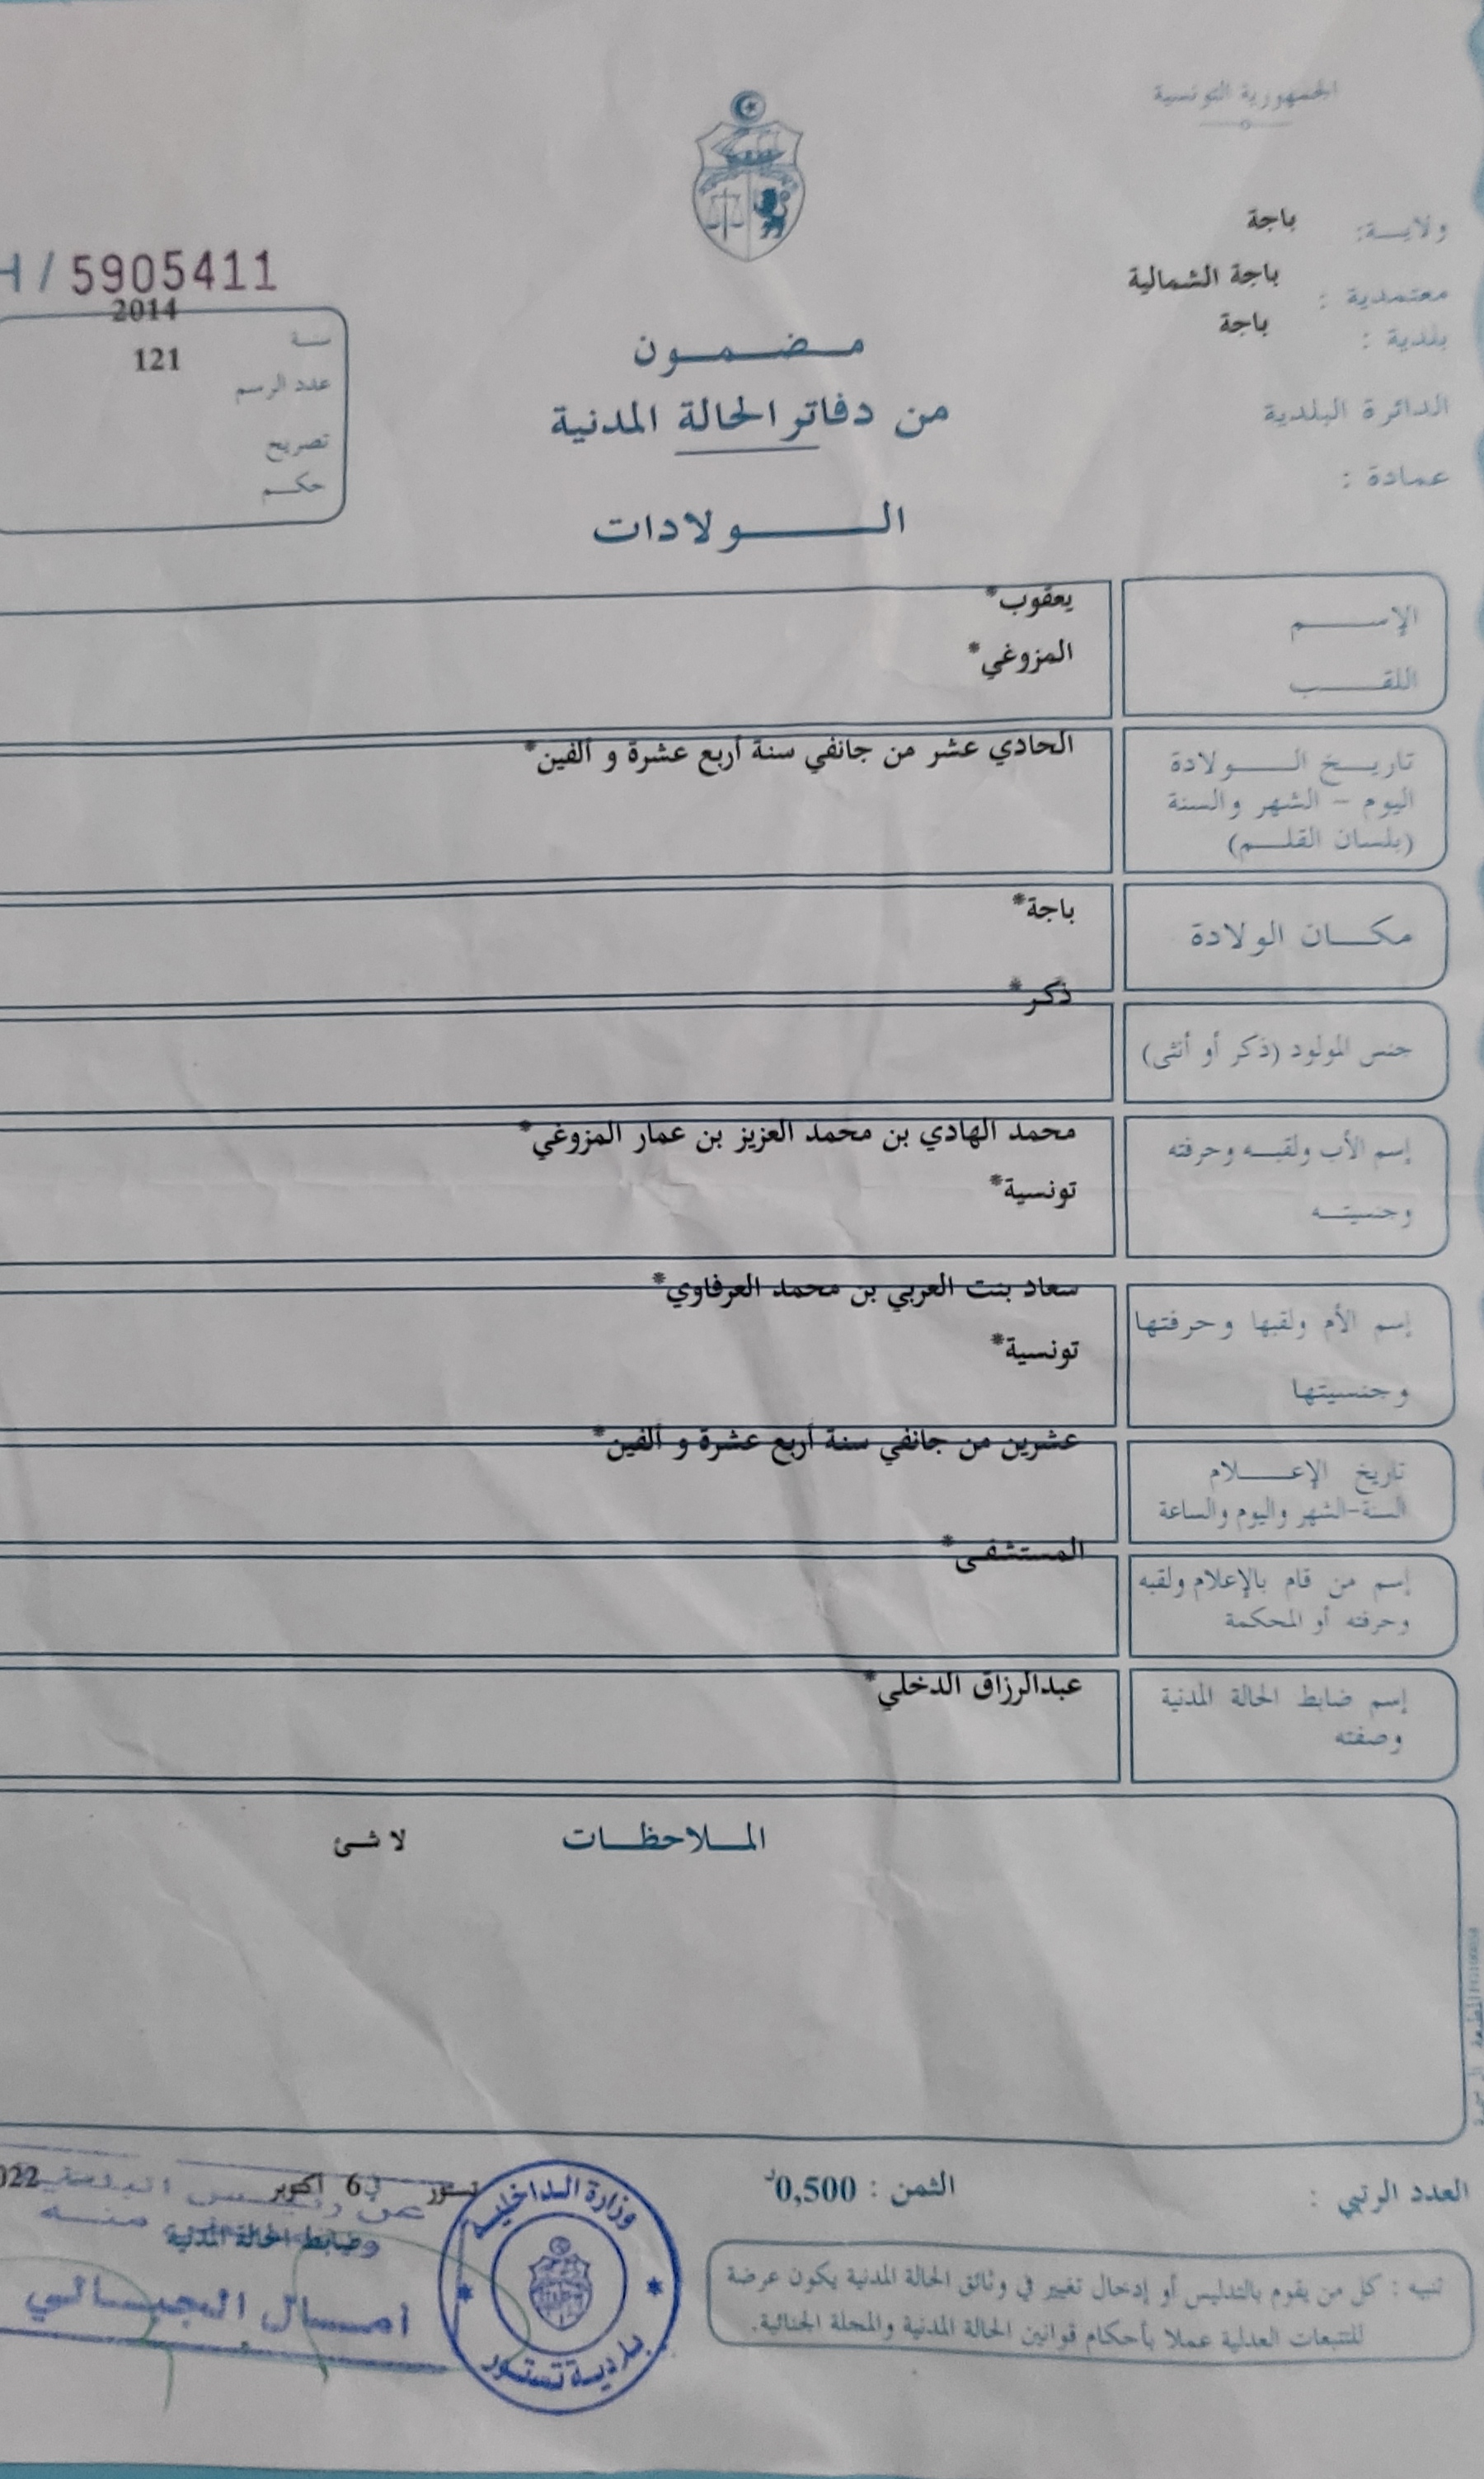 الجمهورية التونسية
ولايـــة: باجة
معتمدية : باجة الشمالية
بلدية : باجة
الدائرة البلدية
عمادة :
H / 5905411
سنة 2014
عدد الرسم 121
تصريح
حكم
مضمون
من دفاتر الحالة المدنية
الولادات
الإسم يعقوب*
اللقب المزوغي*
تاريخ الولادة الحادي عشر من جانفي سنة أربع عشرة و ألفين*
اليوم – الشهر والسنة
(بلسان القلم)
مكان الولادة باجة*
جنس المولود (ذكر أو أنثى) ذكر*
إسم الأب ولقبه وحرفته محمد الهادي بن محمد العزيز بن عمار المزوغي*
وجنسيته تونسية*
إسم الأم ولقبها وحرفتها سعاد بنت العربي بن محمد العرفاوي*
وجنسيتها تونسية*
تاريخ الإعلام عشرين من جانفي سنة أربع عشرة و ألفين*
السنة-الشهر واليوم والساعة
إسم من قام بالإعلام ولقبه المستشفى*
وحرفته أو المحكمة
إسم ضابط الحالة المدنية عبدالرزاق الدخلي*
وصفته
الملاحظات لا شئ
العدد الرتبي :
الثمن : 0,500د
تستور في 6 أكتوبر 022
عن رئيس البلدية
ضابط الحالة المدنية
امال الجبالي
وزارة الداخلية
بلدية تستور
تنبيه : كل من يقوم بالتدليس أو إدخال تغيير في وثائق الحالة المدنية يكون عرضة
للتتبعات العدلية عملا بأحكام قوانين الحالة المدنية والمجلة الجنائية.